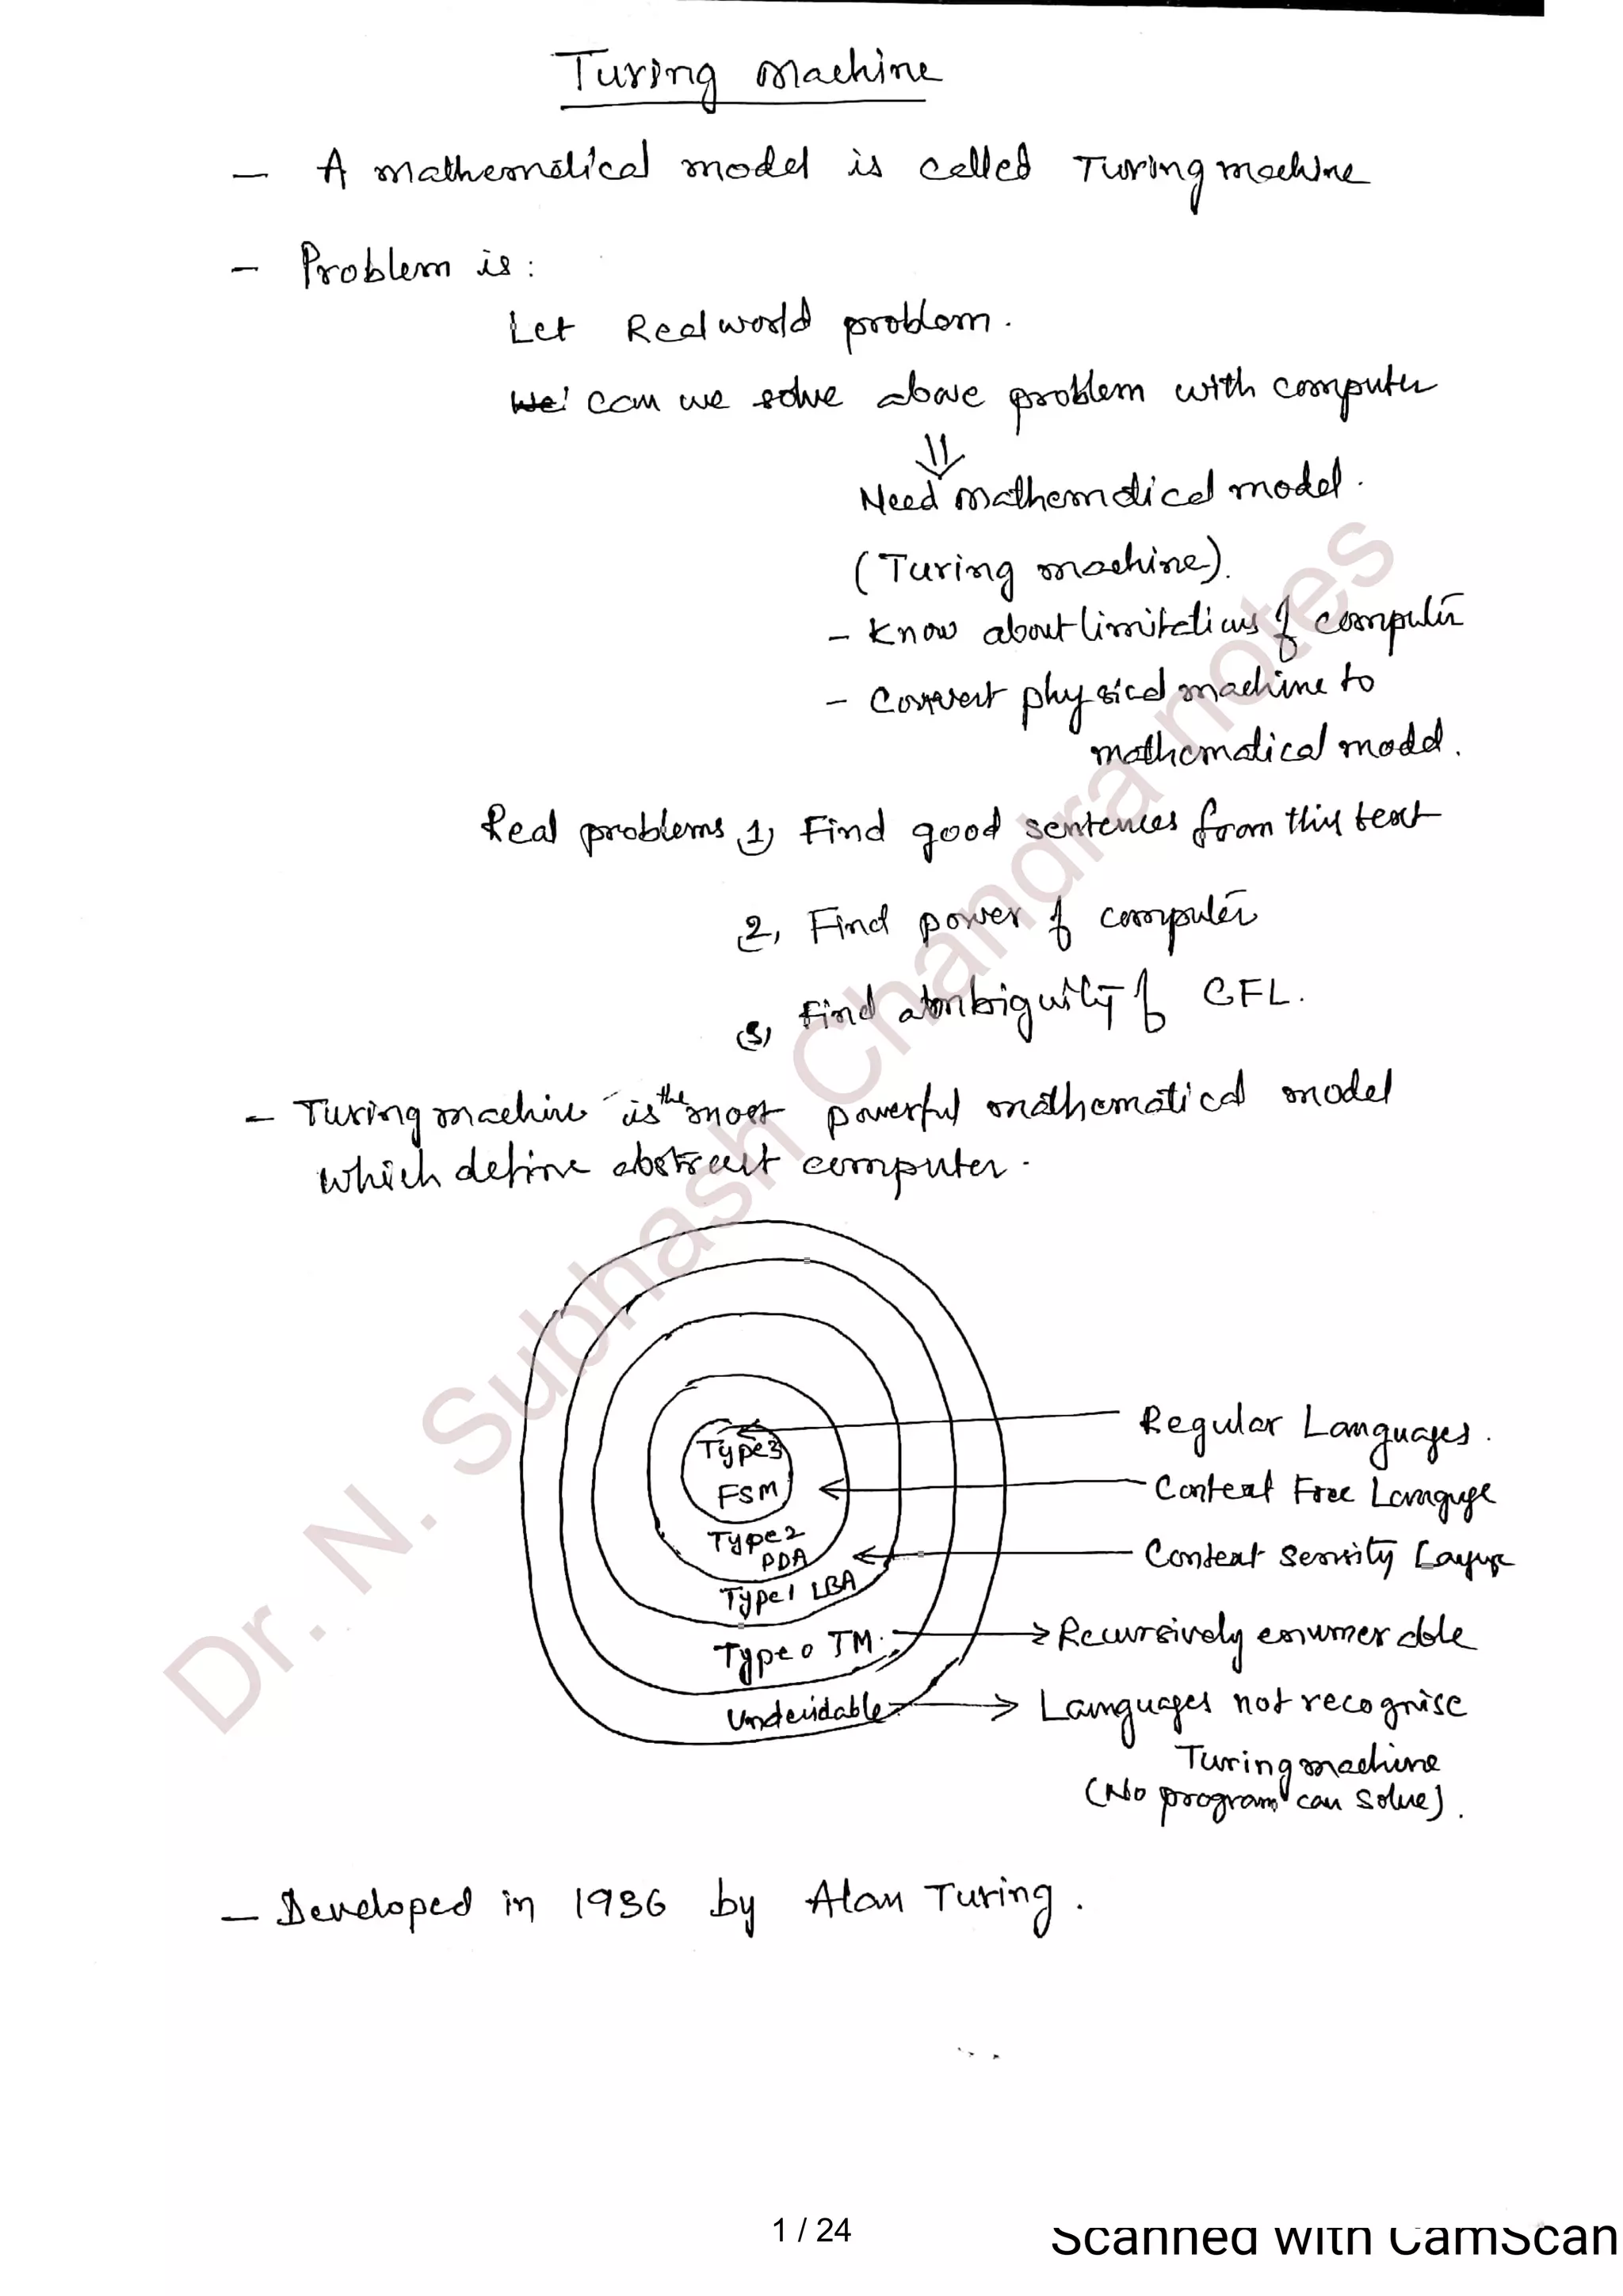 Turing Machine
- A mathematical model is called Turing machine
- Problem is :
Let Real world problem.
We! Can we solve above problem with computer
⇓
Need Mathematical model.
(Turing machine).
- Know about limitations of computer
- Convert physical machine to
mathematical model.
Real problems 1) Find good sentences from this text
2) Find power of computer
3) Find ambiguity of CFL.
- Turing machine is the most powerful mathematical model
which define abstract computer.
Type 3
FSM
Type 2
PDA
Type 1 LBA
Type 0 TM.
Undecidable
Regular Languages.
Context Free Language
Context Sensity
Recursively enumerable
Languages not recognise
Turing machine
(No program can solve).
- Developed in 1936 by Alan Turing.
Dr. N. Subhash Chandra notes
1 / 24
Scanned with CamScan